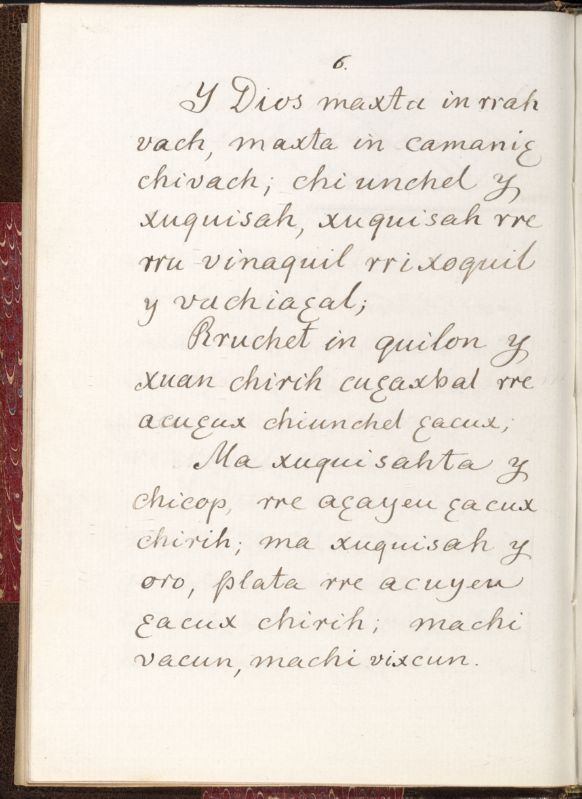 6.
Y Dios maxta in rrah
vach, maxta in camaniꜫ
chivach; chi unchel y
xuquisah, xuquisah rre
rru vinaquil rri xoquil
y vachiaꜫal;
Rruchet in quilon y
xuan chirih cuꜫaxbal rre
acuꜫux chiunchel ꜫacux;
Ma xuquisahta y
chicop, rre aꜫayeu ꜫacux
chirih; ma xuquisah y
oro, plata rre acuyeu
ꜫacux chirih; machi
vacun, machi vixcun.